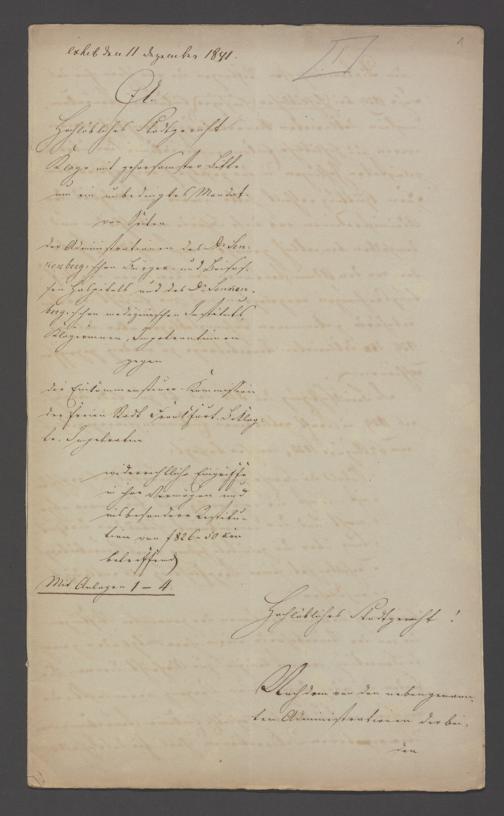 exhib. den 11 Dezember 1841.
II
1
An
Hochlöbliches Stadtgericht
Klage mit gehorsamster Bitte
um ein unbedingtes Mandat
von Seiten
der Administrationen des Dr. Sen-
kenberg'schen Bürger- und Beisas-
sen Hospitals und des Dr. Senken-
berg'schen medizinischen Instituts,
Klägerinnen, Impetrantinnen
gegen
die Einkommensteuer-Kommission
der Freien Stadt Frankfurt, Beklag-
te, Impetratin
widerrechtliche Eingriffe
in ihr Vermögen und
insbesondere Restitu-
tion von f 826. 50 Kr
betreffend
Mit Anlagen 1 – 4.
Hochlöbliches Stadtgericht!
Nachdem von den nebengenann-
ten Administrationen der bei-
den